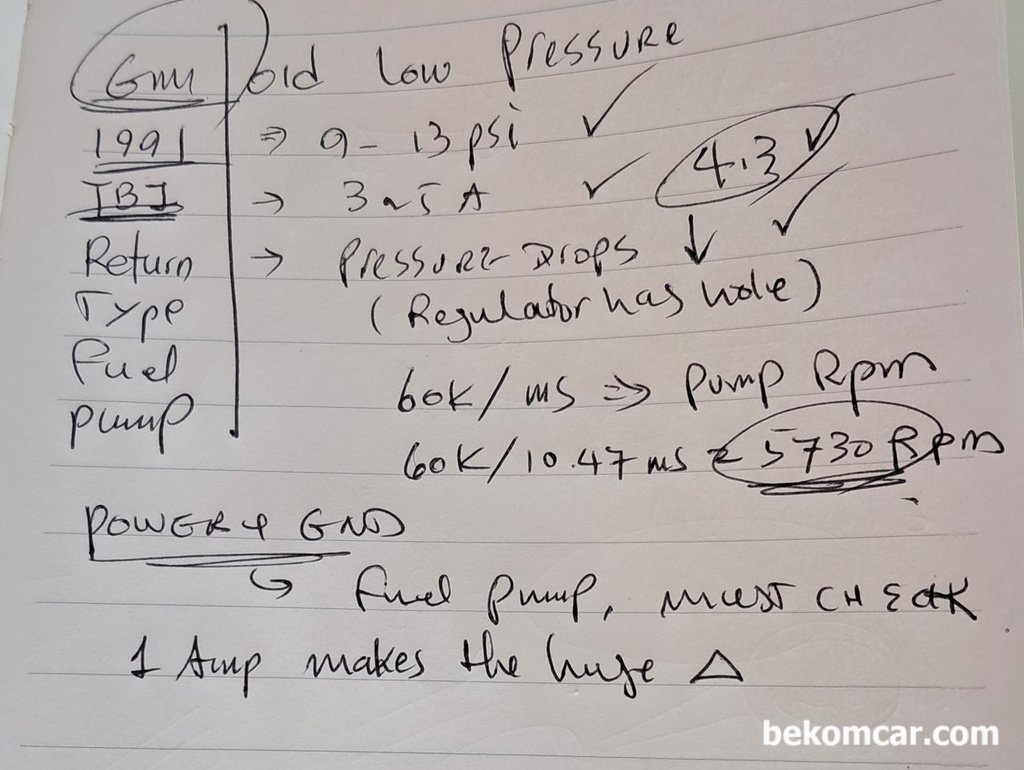 GM old Low Pressure
1991 ⇒ 9 - 13 psi ✓
TBI → 3~5 A ✓ 4.3 ✓
Return → Pressure Drops ↓ ✓
Type (Regulator has hole)
Fuel
Pump 60K / ms ⇒ Pump Rpm
60K / 10.47 ms ≈ 5730 Rpm
POWER & GND
↳ Fuel Pump, MUST CHECK
1 Amp makes the huge Δ
bekomcar.com